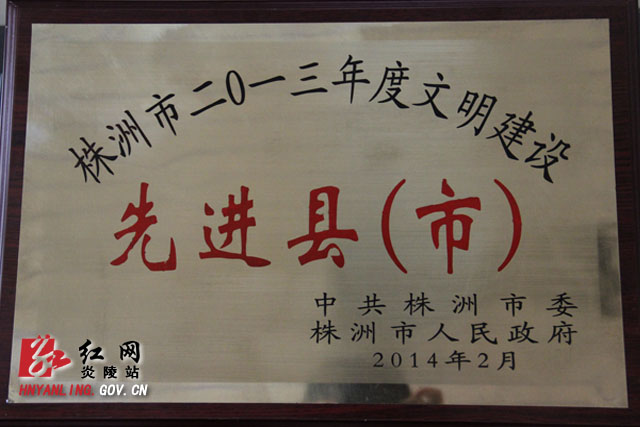 株洲市二〇一三年度文明建设
先进县(市)
中共株洲市委
株洲市人民政府
2014年2月
红网
炎陵站
HNYANLING.GOV.CN